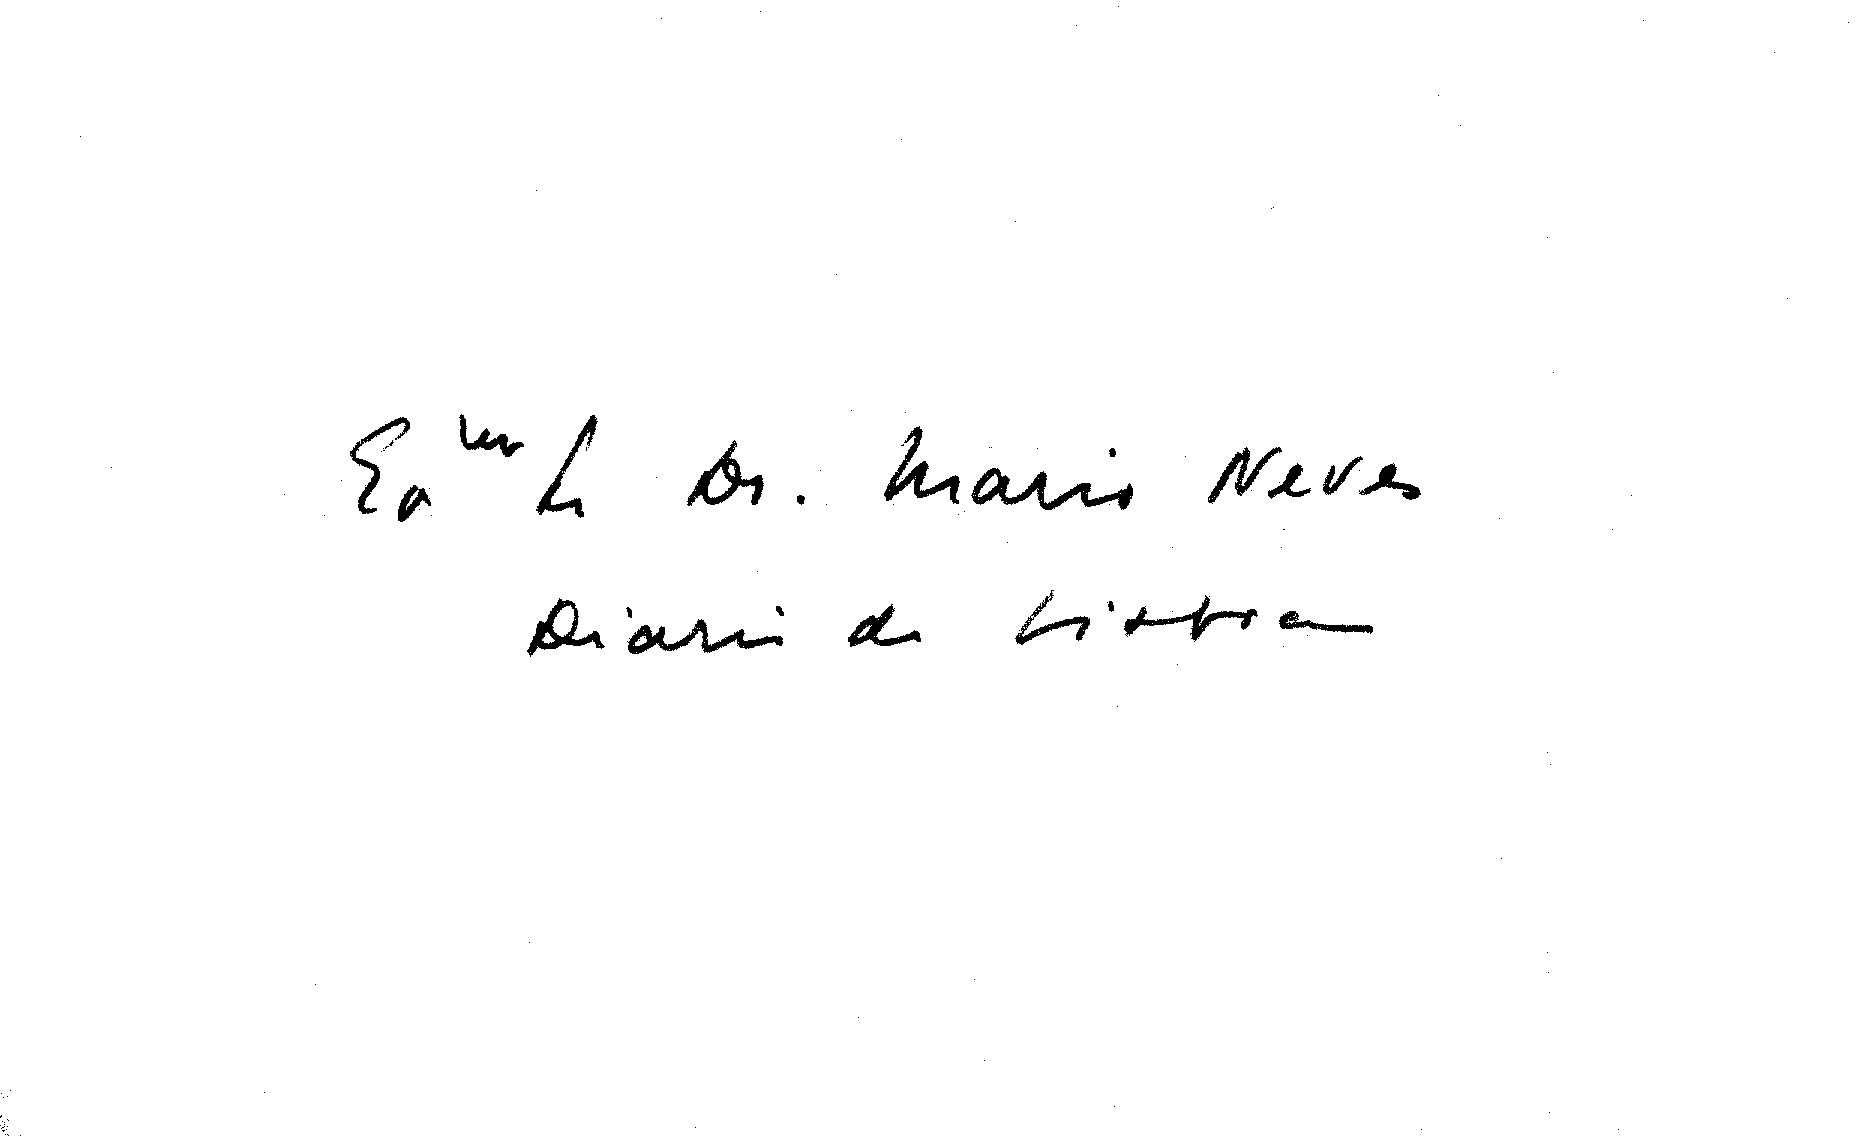 Exmo Sr Dr. Mario Neves
Diario de Lisboa